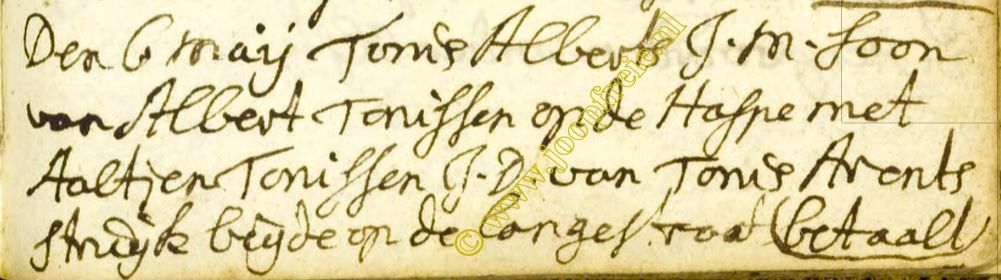 Den 6 maij Tonis Alberts J. M. soon
van Albert Tonissen op de Haspe met
Aaltjen Tonissen J. D. van Tonis Arents
struijk beijde op de langestraat betaalt
© www.joomfreie.nl